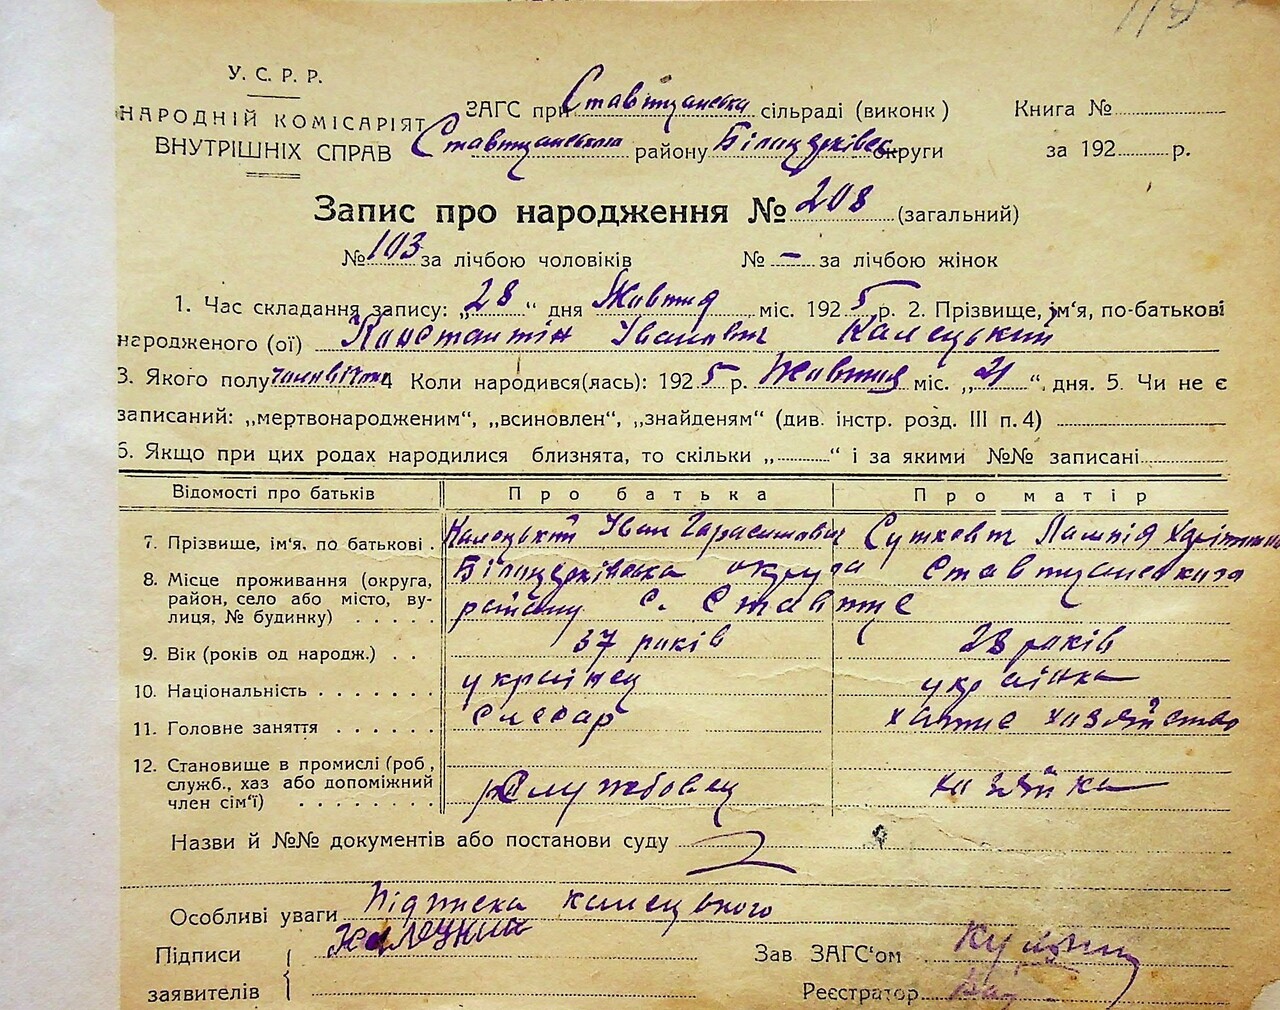 У. С. Р. Р.
НАРОДНІЙ КОМІСАРІЯТ
ВНУТРІШНІХ СПРАВ
ЗАГС при Ставищанська сільраді (виконк)
Ставищанського району Білоцерківсь округи
Книга №
за 192 р.
Запис про народження № 208 (загальний)
№ 103 за лічбою чоловіків № – за лічбою жінок
1. Час складання запису: „28“ дня Жовтня міс. 1925 р. 2. Прізвище, ім‘я, по-батькові
народженого (ої) Константін Іванович Калецький
3. Якого полу чоловічого 4 Коли народився(лась): 1925 р. Жовтня міс. „21“, дня. 5. Чи не є
записаний: „мертвонародженим“, „всиновлен“, „знайденям“ (див. інстр. розд. III п. 4)
6. Якщо при цих родах народилися близнята, то скільки „ “ і за якими №№ записані
Відомості про батьків Про батька Про матір
7. Прізвище, ім‘я, по батькові . Калецький Іван Гарасимович Суткевич
8. Місце проживання (округа, Білоцерківська округа Ставищанского
район, село або місто, ву- району с. Ставище
лиця, № будинку) . . . . .
9. Вік (років од народж.) . . 37 раків 28 раків
10. Національність . . . . . . . українец українка
11. Головне заняття . . . . . . слесар хатнє хазяйство
12. Становище в промислі (роб, служб., хаз або допоміжний член сім‘ї) . . . . . . . . Службовец хазяйка
Назви й №№ документів або постанови суду
Особливі уваги Підписка Калецького
Підписи Калецкий
заявителів
Зав. ЗАГС‘ом
Реєстратор